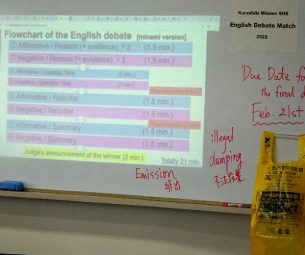 Flowchart of the English debate [minami version]
Affirmative / Reason (+ evidence) × 2 (1.5 min.)
Negative / Reason (+ evidence) × 2 (1.5 min.)
Affirmative / Question Time (2 min.)
Negative / Question Time (2 min.)
Affirmative / Rebuttal (1.5 min.)
Negative / Rebuttal (1.5 min.)
Affirmative / Summary (1.5 min.)
Negative / Summary (1.5 min.)
Judge's announcement of the winner (2 min.)
Totally 21 min.
Kurashiki Minami SHS
English Debate Match
2022
Due Date fo
the final d
Feb. 21st
illegal
dumping
不法投棄
Emission
排出